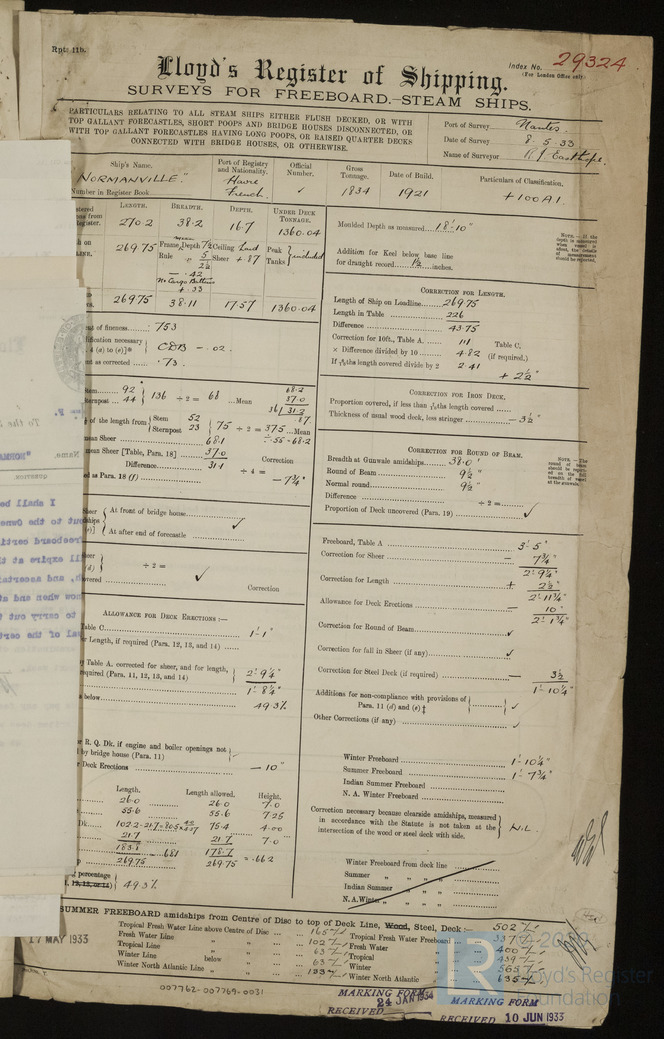 Rpt. 11b.
Index No. 29324
(For London Office only)
Lloyd's Register of Shipping.
SURVEYS FOR FREEBOARD.—STEAM SHIPS.
PARTICULARS RELATING TO ALL STEAM SHIPS EITHER FLUSH DECKED, OR WITH
TOP GALLANT FORECASTLES, SHORT POOPS AND BRIDGE HOUSES DISCONNECTED, OR
WITH TOP GALLANT FORECASTLES HAVING LONG POOPS, OR RAISED QUARTER DECKS
CONNECTED WITH BRIDGE HOUSES, OR OTHERWISE.
Port of Survey Nantes.
Date of Survey 8.5.33
Name of Surveyor R. J. Easthope.
Ship's Name. Port of Registry and Nationality. Official Number. Gross Tonnage. Date of Build. Particulars of Classification.
"NORMANVILLE." Havre French. ✓ 1834 1921 +100A1.
Number in Register Book
LENGTH. BREADTH. DEPTH. UNDER DECK TONNAGE.
270.2 38.2 16.7 1360.04
269.75 Frame Depth 7½ Ceiling Laid Peak Tanks included
Rule Sheer + .87
- .42
No Cargo Battens
+ .33
269.75 38.11 17.57 1360.04
of fineness : 753
[4 (a) to (e)]* CDB - .02.
as corrected .73.
Stem 92 Sternpost 44 136 ÷ 2 = 68 Mean
68.2
37.0
31.2
of the length from Stem 52 Sternpost 23 75 ÷ 2 = 37.5 Mean
÷ .55 = 68.2
mean Sheer 68.1
mean Sheer [Table, Para. 18] 37.0 Correction
Difference 31.1 ÷ 4 =
as Para. 18 (f) - 7¾"
Sheer At front of bridge house
At after end of forecastle ✓
÷ 2 = ✓
Correction
ALLOWANCE FOR DECK ERECTIONS :—
Table C. 1'-1"
Length, if required (Para. 12, 13, and 14)
Table A. corrected for sheer, and for length,
required (Para. 11, 12, 13, and 14) 2'-9¼"
1'-8¼"
below 49.3%
R. Q. Dk. if engine and boiler openings not
by bridge house (Para. 11)
Deck Erections - 10"
Length. Length allowed. Height.
26.0 26.0 7.0
55.6 55.6 7.25
102.2 75.4 4.00
21.7 21.7 7.0
178.7
269.75 = .681 269.75 = .662
percentage 49.3%
Moulded Depth as measured 18'-10"
Addition for Keel below base line
for draught record 1½ inches.
CORRECTION FOR LENGTH.
Length of Ship on Loadline 269.75
Length in Table 226
Difference 43.75
Correction for 10ft., Table A. 1.11 Table C.
× Difference divided by 10 4.82 (if required.)
If 6/10ths length covered divide by 2 2.41
+ 2½"
CORRECTION FOR IRON DECK.
Proportion covered, if less than 7/10ths length covered
Thickness of usual wood deck, less stringer - 3½"
CORRECTION FOR ROUND OF BEAM.
Breadth at Gunwale amidships 38.0'
Round of Beam 9½"
Normal round 9½"
Difference ÷ 2 =
Proportion of Deck uncovered (Para. 19) ✓
Freeboard, Table A 3'-5"
Correction for Sheer - 7¾"
2'-9¼"
Correction for Length + 2½"
2'-11¾"
Allowance for Deck Erections - 10"
2'-1¾"
Correction for Round of Beam ✓
Correction for fall in Sheer (if any) ✓
Correction for Steel Deck (if required) - 3½
1'-10¼"
Additions for non-compliance with provisions of
Para. 11 (d) and (e)‡ ✓
Other Corrections (if any) ✓
Winter Freeboard 1'-10¼"
Summer Freeboard 1'-7¾"
Indian Summer Freeboard
N. A. Winter Freeboard
Correction necessary because clearside amidships, measured
in accordance with the Statute is not taken at the
intersection of the wood or steel deck with side. Nil.
Winter Freeboard from deck line
Summer " " "
Indian Summer " " "
N.A. Winter " " "
SUMMER FREEBOARD amidships from Centre of Disc to top of Deck Line, Wood, Steel, Deck :— 502
Tropical Fresh Water Line above Centre of Disc 165 Tropical Fresh Water Freeboard 337
Fresh Water Line " " 102 Fresh Water " 400
Tropical Line " " 63 Tropical " 439
Winter Line below " 63 Winter " 565
Winter North Atlantic Line " " Winter North Atlantic " 635
17 MAY 1933
007762-007769-0031
MARKING FORM
24 JAN 1934
RECEIVED
MARKING FORM
RECEIVED 10 JUN 1933
© 2020
Lloyd's Register
Foundation